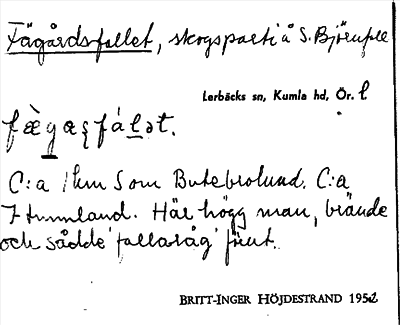 Fägårdsfallet, skogsparti å S. Björnfall
Lerbäcks sn, Kumla hd, Ör. l
fæ̀gaʂfáḷət.
C:a 1 km S om Butebrolund. C:a
7 tunnland. Här högg man, brände
och sådde 'fallaråg' förut.
BRITT-INGER HÖJDESTRAND 1952